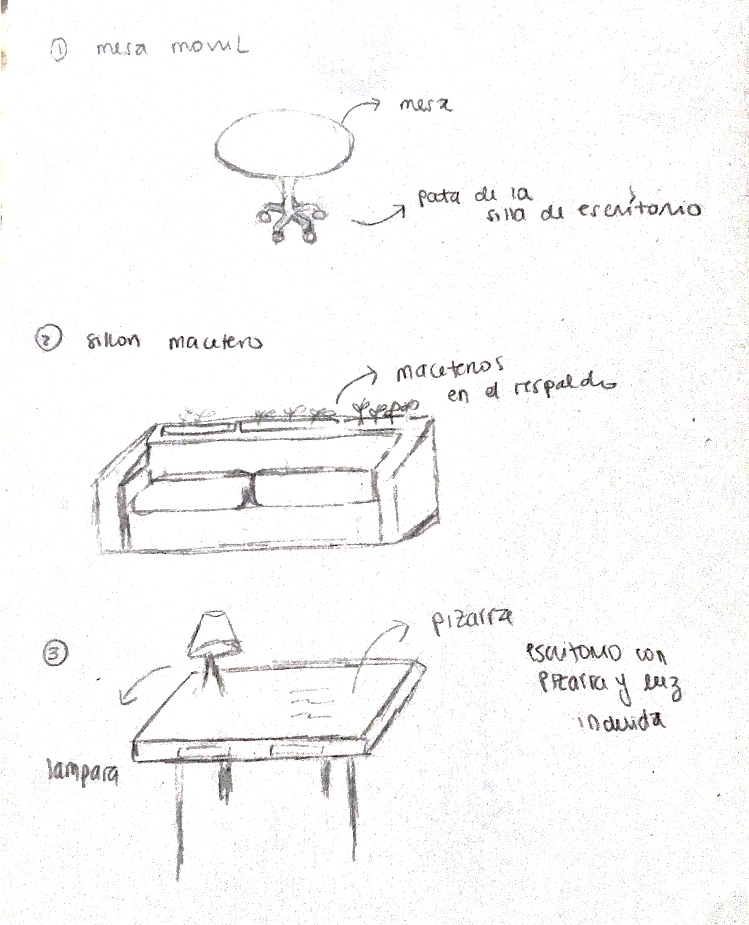 ① mesa movil
mesa
pata de la
silla de escritorio
② sillon macetero
maceteros
en el respaldo
③
pizarra
escritorio con
pizarra y luz
incluida
lampara